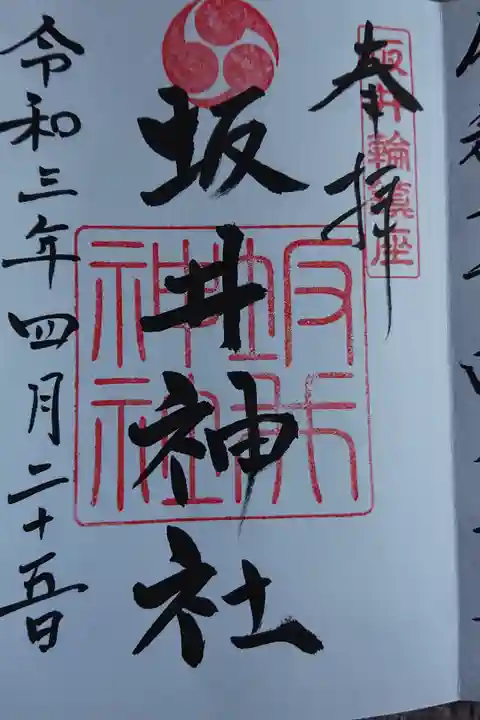 奉拝
坂井輪鎮座
坂井神社
令和三年四月二十五日